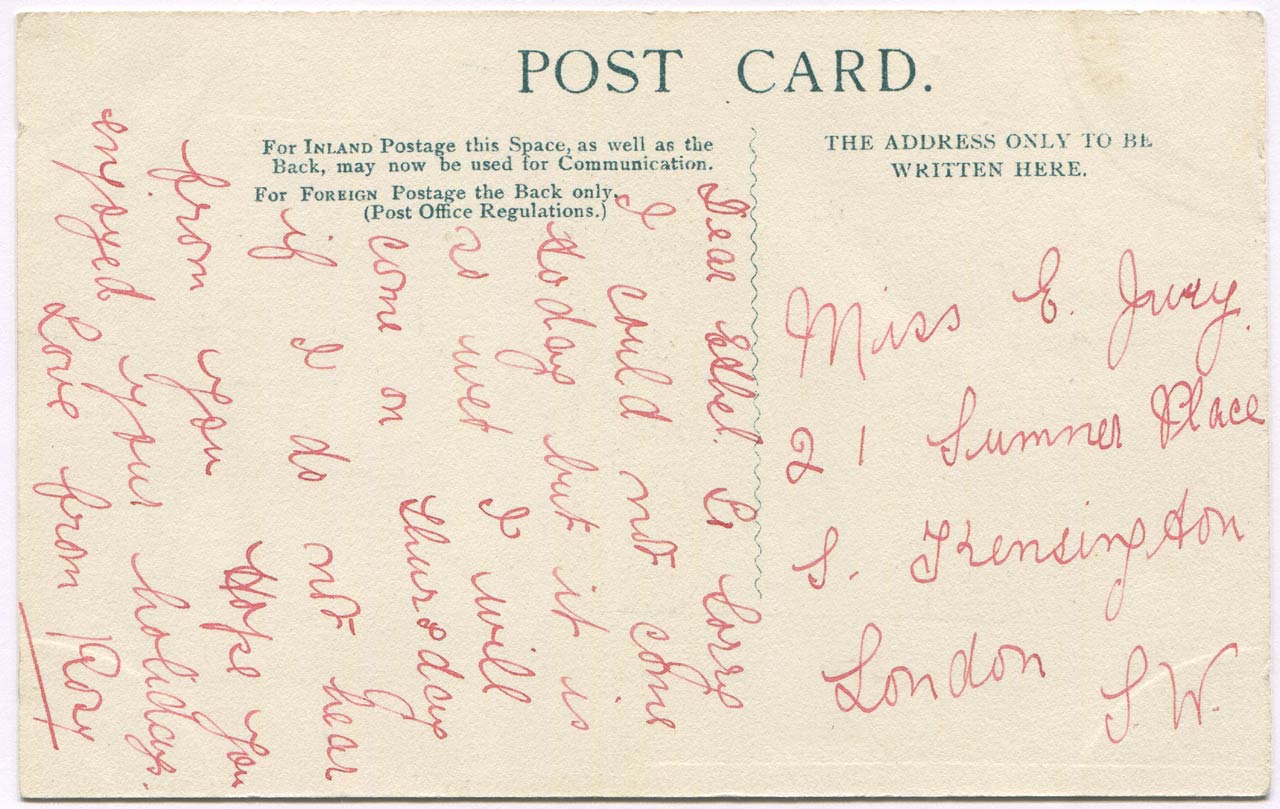 POST CARD.
For INLAND Postage this Space, as well as the
Back, may now be used for Communication.
For FOREIGN Postage the Back only.
(Post Office Regulations.)
THE ADDRESS ONLY TO BE
WRITTEN HERE.
Dear Ethel. So Sorry
I could not come
today but it is
so wet I will
come on Thursday
if I do not hear
from you Hope you
enjoyed your holidays.
Love from Rory
Miss E. Jury.
21 Sumner Place
S. Kensington
London
S.W.